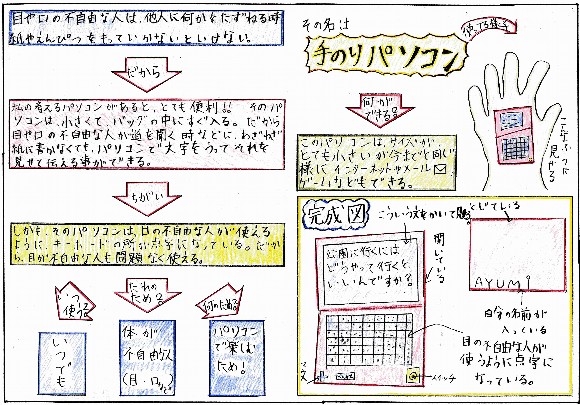 目や口の不自由な人は、他人に何かをたずねる時
紙やえんぴつをもっていかないといけない。
だから
私の考えるパソコンがあると、とても便利!! そのパ
ソコンは、小さくて、バッグの中にすぐ入る。だから
目や口の不自由な人が道を聞く時などに、わざわざ
紙に書かなくても、パソコンで文字をうってそれを
見せて伝える事ができる。
ちがい
しかも、そのパソコンは、目の不自由な人が使える
ように、キーボードの所が点字になっている。だか
ら、目が不自由な人も問題なく使える。
いつ
使う?
だれの
ため?
何のため?
いつでも
体が
不自由な人
(目・口など)
パソコン
で楽しむ
ため!
その名は
手のりパソコン
使ってる様子
何が
できる?
このパソコンは、サイズが、
とても小さいが今までと同じ
様にインターネットやメール
ゲームなどもできる。
こんなふうに
見える
完成図
こういう文をかいて
とじている
開いている
公園に行くには
どうやって行くと
いいんですか?
AYUMI
自分の名前が
入っている
目の不自由な人が
使うように点字に
なっている。
スイッチ